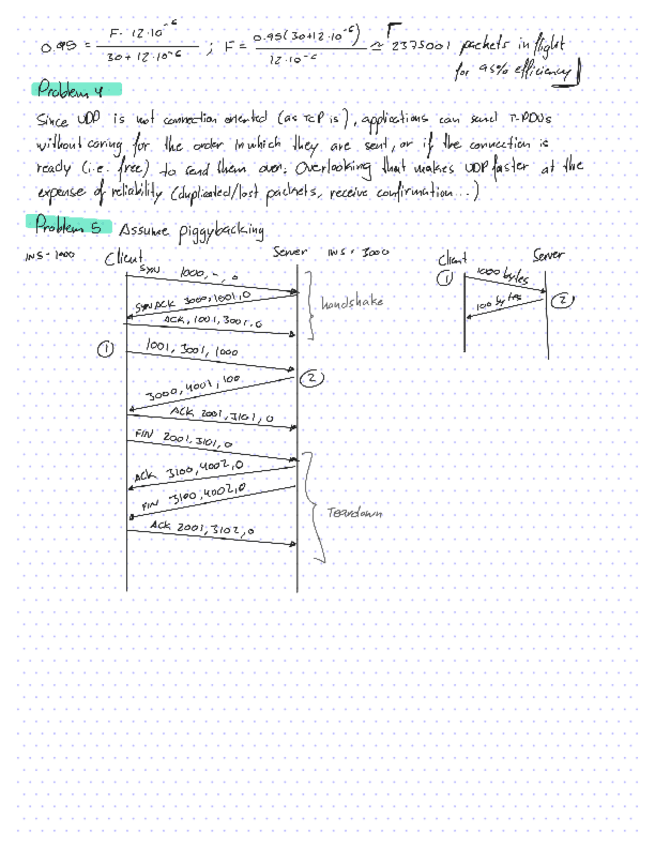 0.95 = F · 12·10⁻⁶ / 30 + 12·10⁻⁶ ; F = 0.95(30+12·10⁻⁶) / 12·10⁻⁶ ≃ 2375001 packets in flight
for 95% efficiency
Problem 4
Since UDP is not connection oriented (as TCP is), applications can send T-PDUs
without caring for the order in which they are sent, or if the connection is
ready (i.e. free) to send them over. Overlooking that makes UDP faster at the
expense of reliability (duplicated/lost packets, receive confirmation...)
Problem 5 Assume piggybacking
INS = 1000 Client Server INS = 3000
SYN 1000, -, 0
SYN ACK 3000, 1001, 0
ACK, 1001, 3001, 0
handshake
① 1001, 3001, 1000
3000, 4001, 100 ②
ACK 2001, 3101, 0
FIN 2001, 3101, 0
ACK 3100, 4002, 0
FIN 3100, 4002, 0
ACK 2001, 3102, 0
Teardown
Client Server
① 1000 bytes
100 bytes ②